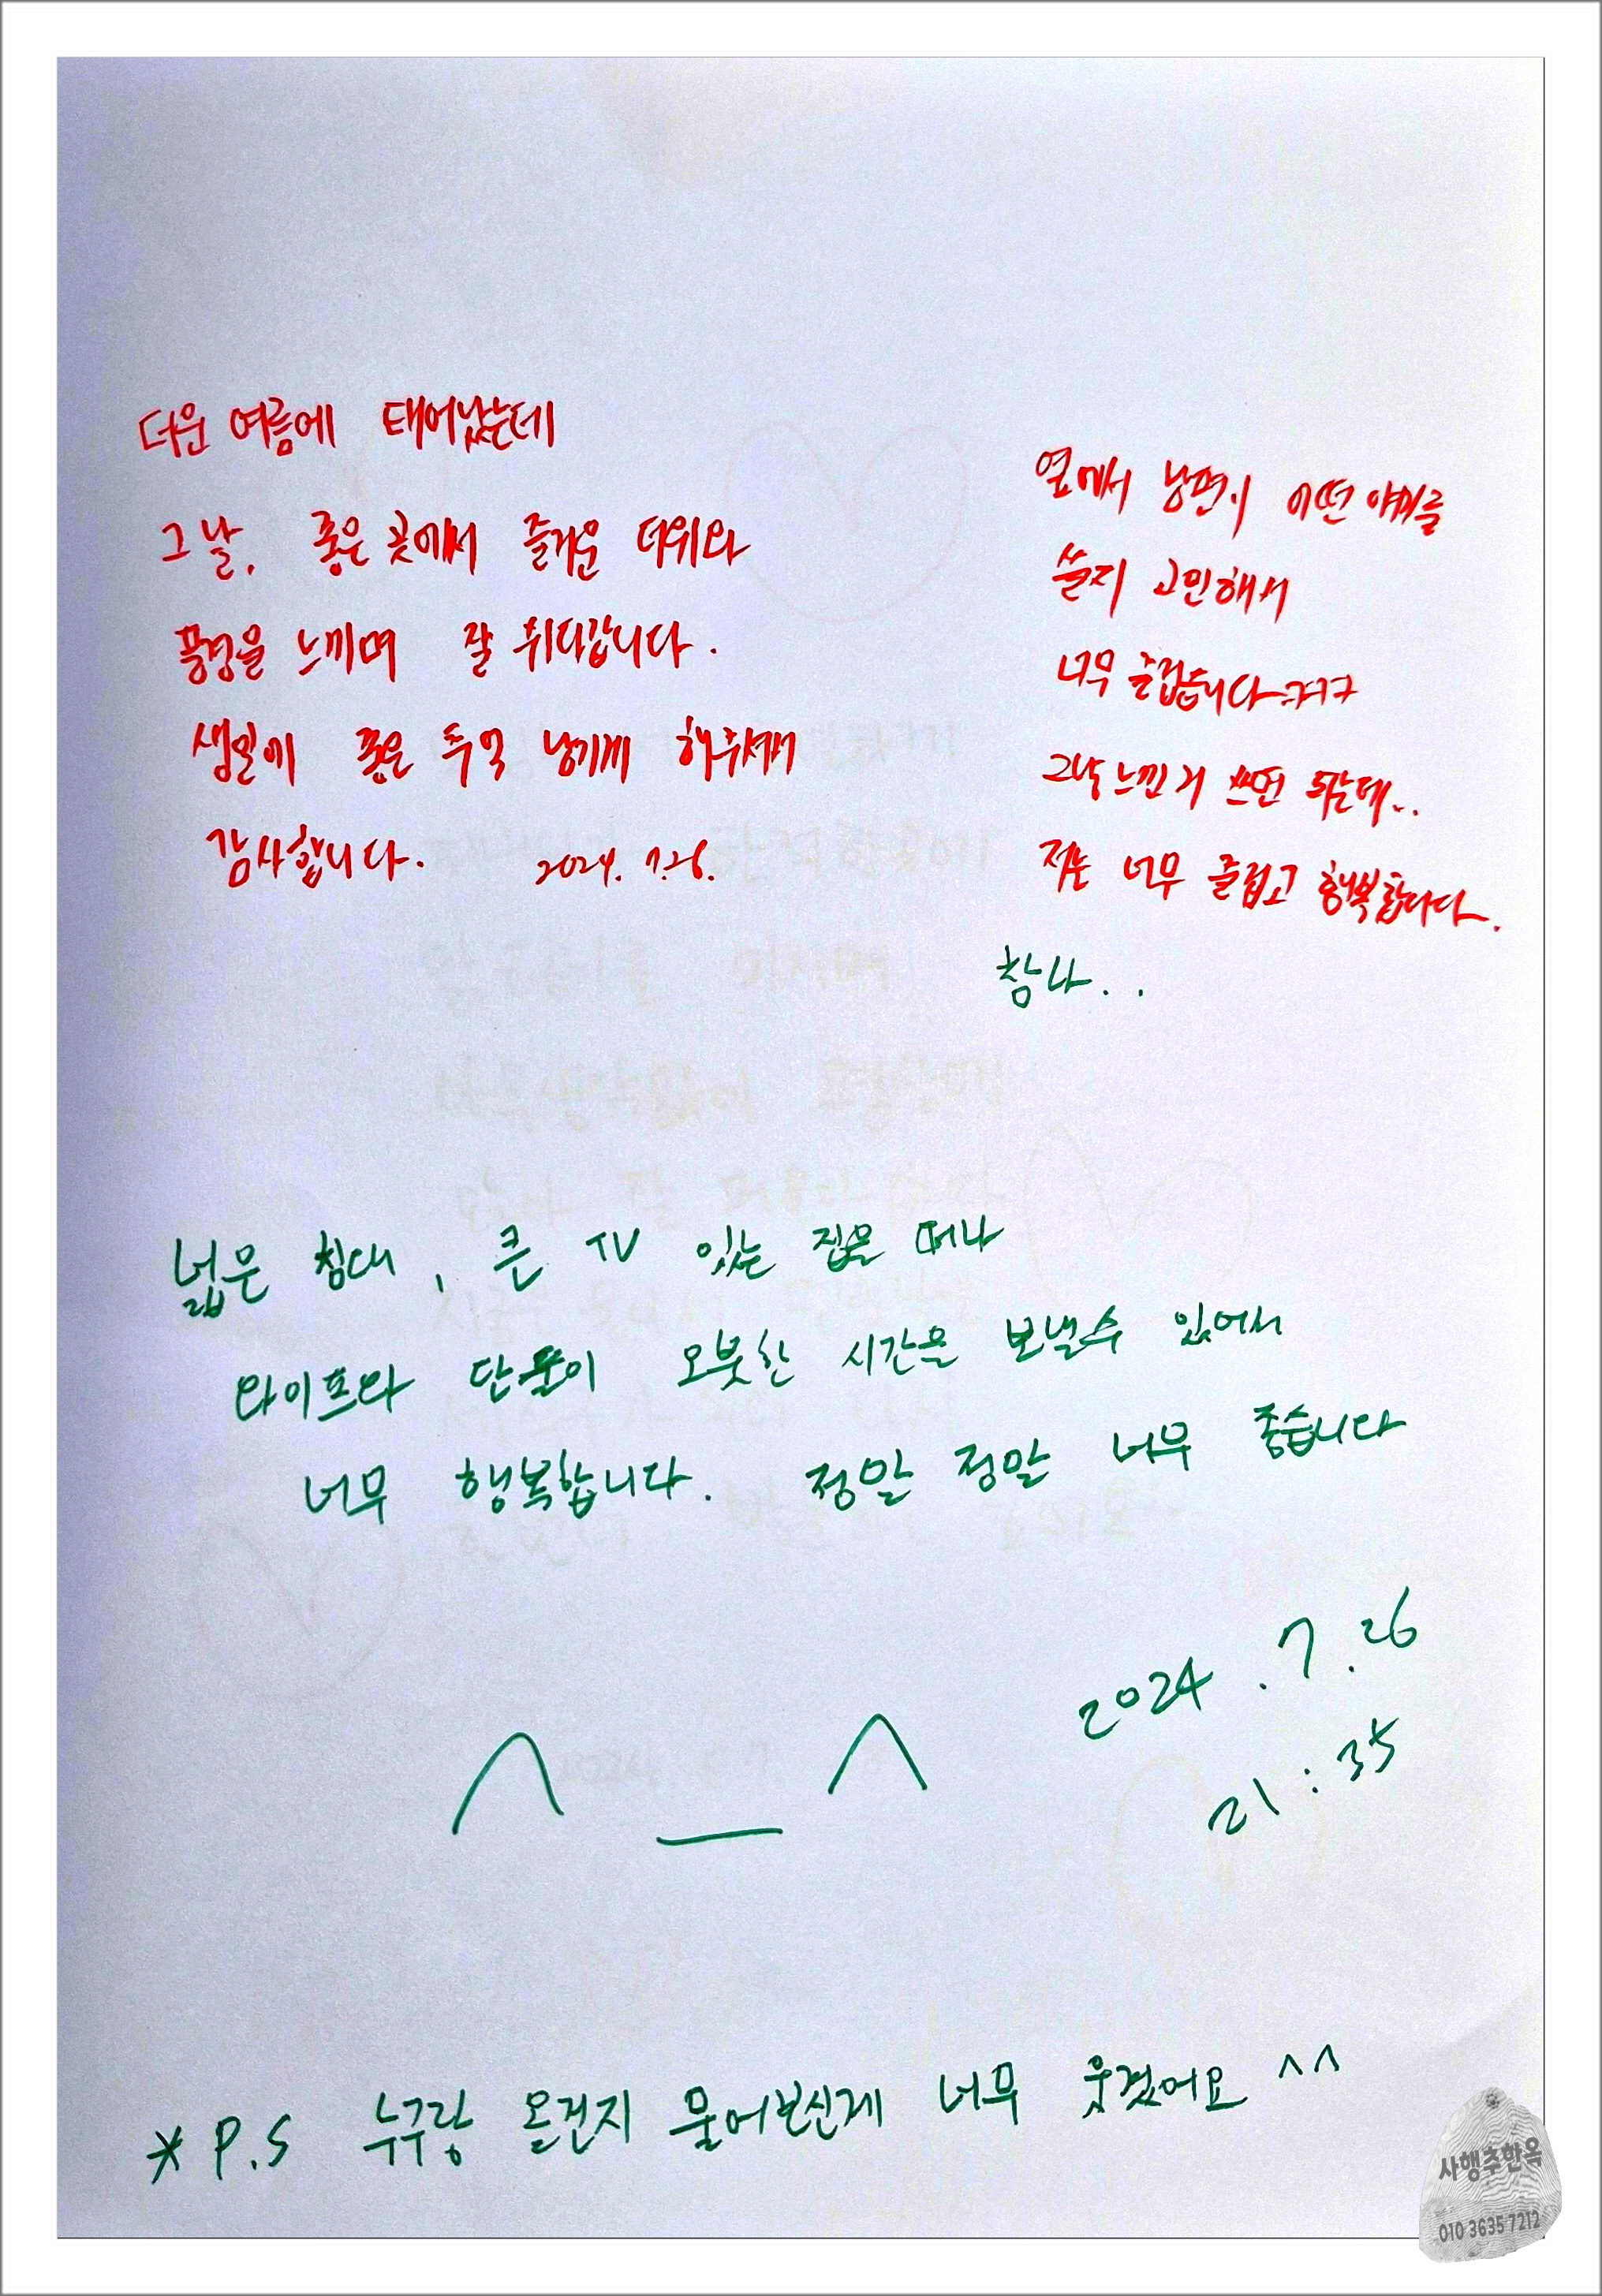 더운 여름에 태어났는데
그 날, 좋은 곳에서 즐거운 더위와
풍경을 느끼며 잘 쉬다갑니다.
생일에 좋은 추억 남기게 해주셔서
감사합니다. 2024. 7.26.
옆에서 남편이 어떤 얘기를
쓸지 고민해서
너무 즐겁습니다ㅋㅋㅋ
그냥 느낀거 쓰면 되는데..
저는 너무 즐겁고 행복합니다.
참나..
넓은 침대, 큰 TV 있는 집을 떠나
와이프와 단둘이 오붓한 시간을 보낼수 있어서
너무 행복합니다. 정말 정말 너무 좋습니다
^_^
2024.7.26
21:35
* P.S 누구랑 온건지 물어보신게 너무 웃겼어요 ^^
사행추한옥
010 3635 7212